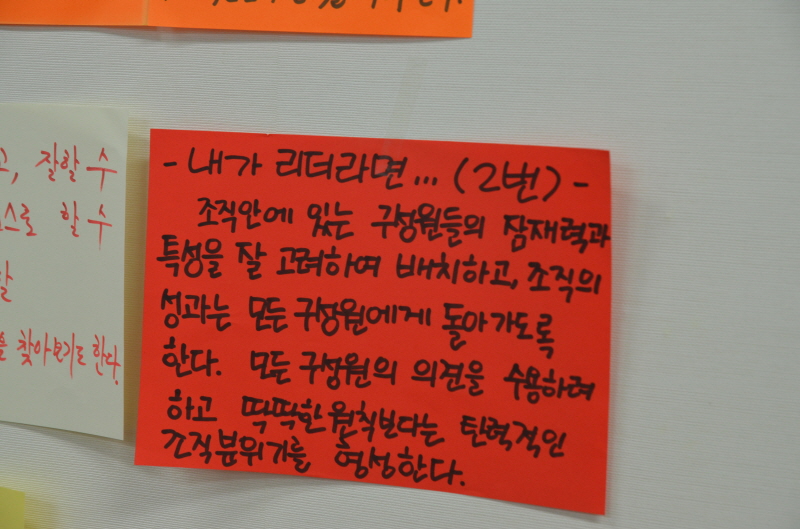 고, 잘할 수
스스로 할 수
찾아보기도 한다.
- 내가 리더라면... (2번) -
조직안에 있는 구성원들의 잠재력과
특성을 잘 고려하여 배치하고, 조직의
성과는 모든 구성원에게 돌아가도록
한다. 모든 구성원의 의견을 수용하려
하고 딱딱한 원칙보다는 탄력적인
조직분위기를 형성한다.